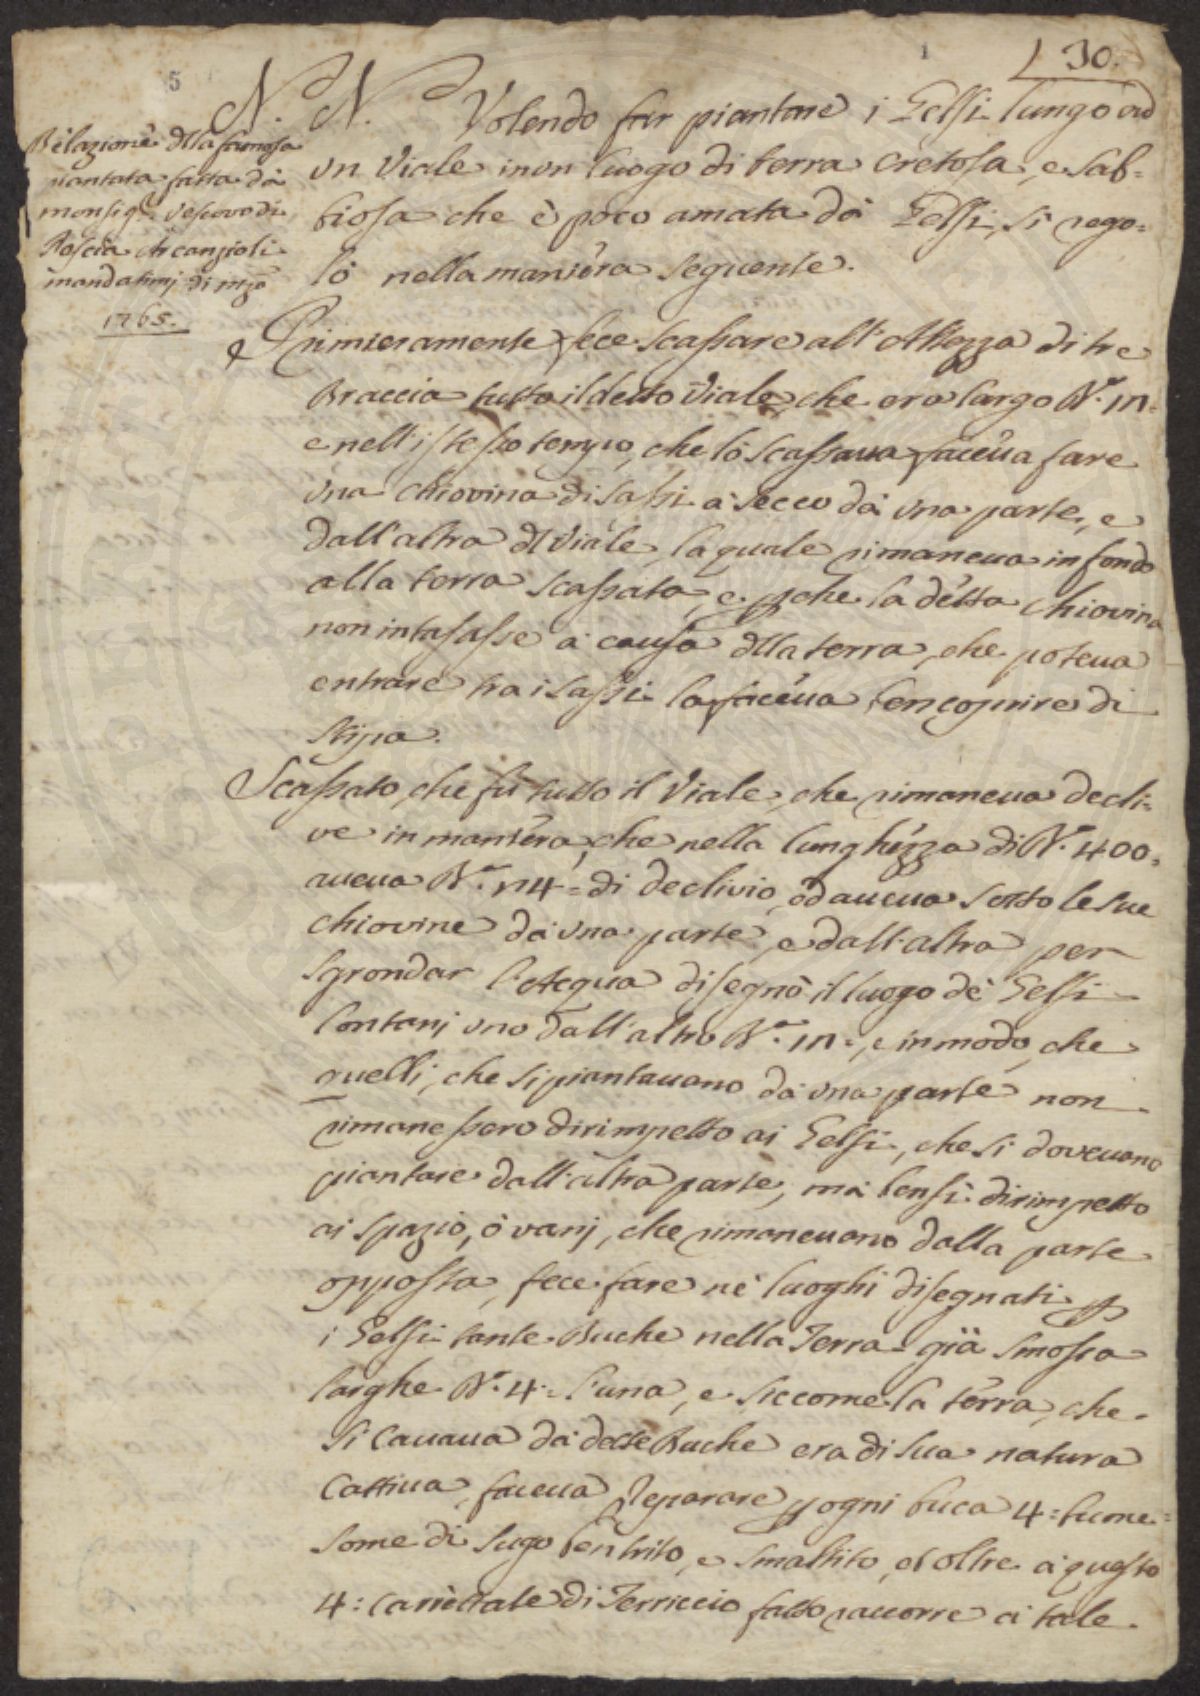 5
1
30.
Relazione dlla famosa
piantata fatta dà
monsig.r Vescovo di
Pescia Arcangioli
mandatimj di mzo
1765.
N. N. Volendo far piantare i Gelsi lungo ad
un Viale in un luogo di terra cretosa, e sab=
biosa che è poco amata dà Gelsi, si rego=
lò nella maniera seguente.
Primieramente fece scassare all'Altezza di tre
Braccia tutto il detto Viale, che era largo B.a 10=
e nell'istesso tempo, che lo scassava faceva fare
una chiovina di sassi à secco dà una parte, e
dall'altra dl Viale, la quale rimaneva in fondo
alla terra scassata, e pche la detta chiovina
non intasasse à causa dlla terra, che poteva
entrare tra i sassi la faceva ben coprire di
stipa.
Scassato, che fù tutto il Viale, che rimaneva decli=
ve in maniera, che nella lunghezza di B.a 400=
aueua B.a 14= di declivio, ed aueua sotto le sue
chiovine dà una parte, e dall'altra per
sgrondar l'Acqua disegnò il luogo dè Gelsi
lontanj uno dall'altro B.a 10=, e in modo, che
quelli, che si piantauano dà una parte non
rimanessero dirimpetto ai Gelsi, che si doveuano
piantare dall'altra parte, mà bensì dirimpetto
ai spazio, ò vanj, che rimaneuano dalla parte
opposta, fece fare nè luoghi disegnati p
i Gelsi tante Buche nella Terra già smossa
larghe B.a 4= l'una, e siccome la terra, che
si cauaua dà dette Buche era di sua natura
cattiua, faceua separare p ogni buca 4=
some di sugo ben trito, e smaltito, et oltre à questo
4: carrettate di Terriccio fatto raccorre à tale